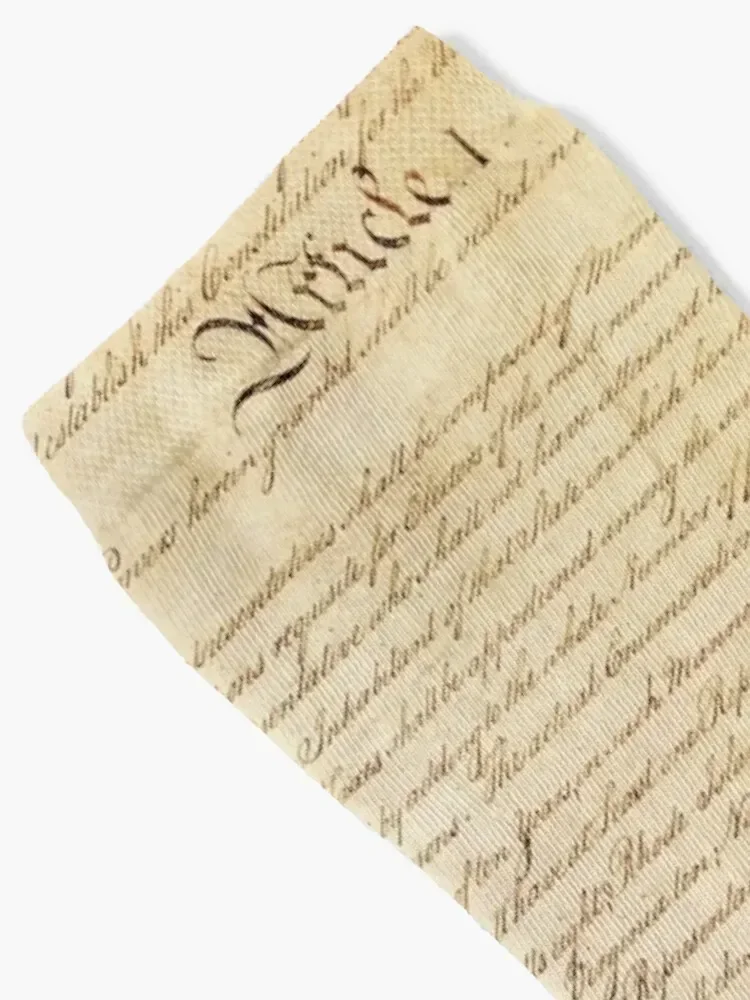 establish this Constitution for the
Article 1
herein granted shall be vested in
shall be composed of Mem
ons requisite for Electors of the most numer
entative who shall not have attained
Inhabitant of that State in which he
shall be apportioned among the se
by adding to the whole Number of
ions. The actual Enumeration
of ten Years, in such Manner
ll have at Least one Rep
eight, Rhode Isla
Virginia ten, N
Representat